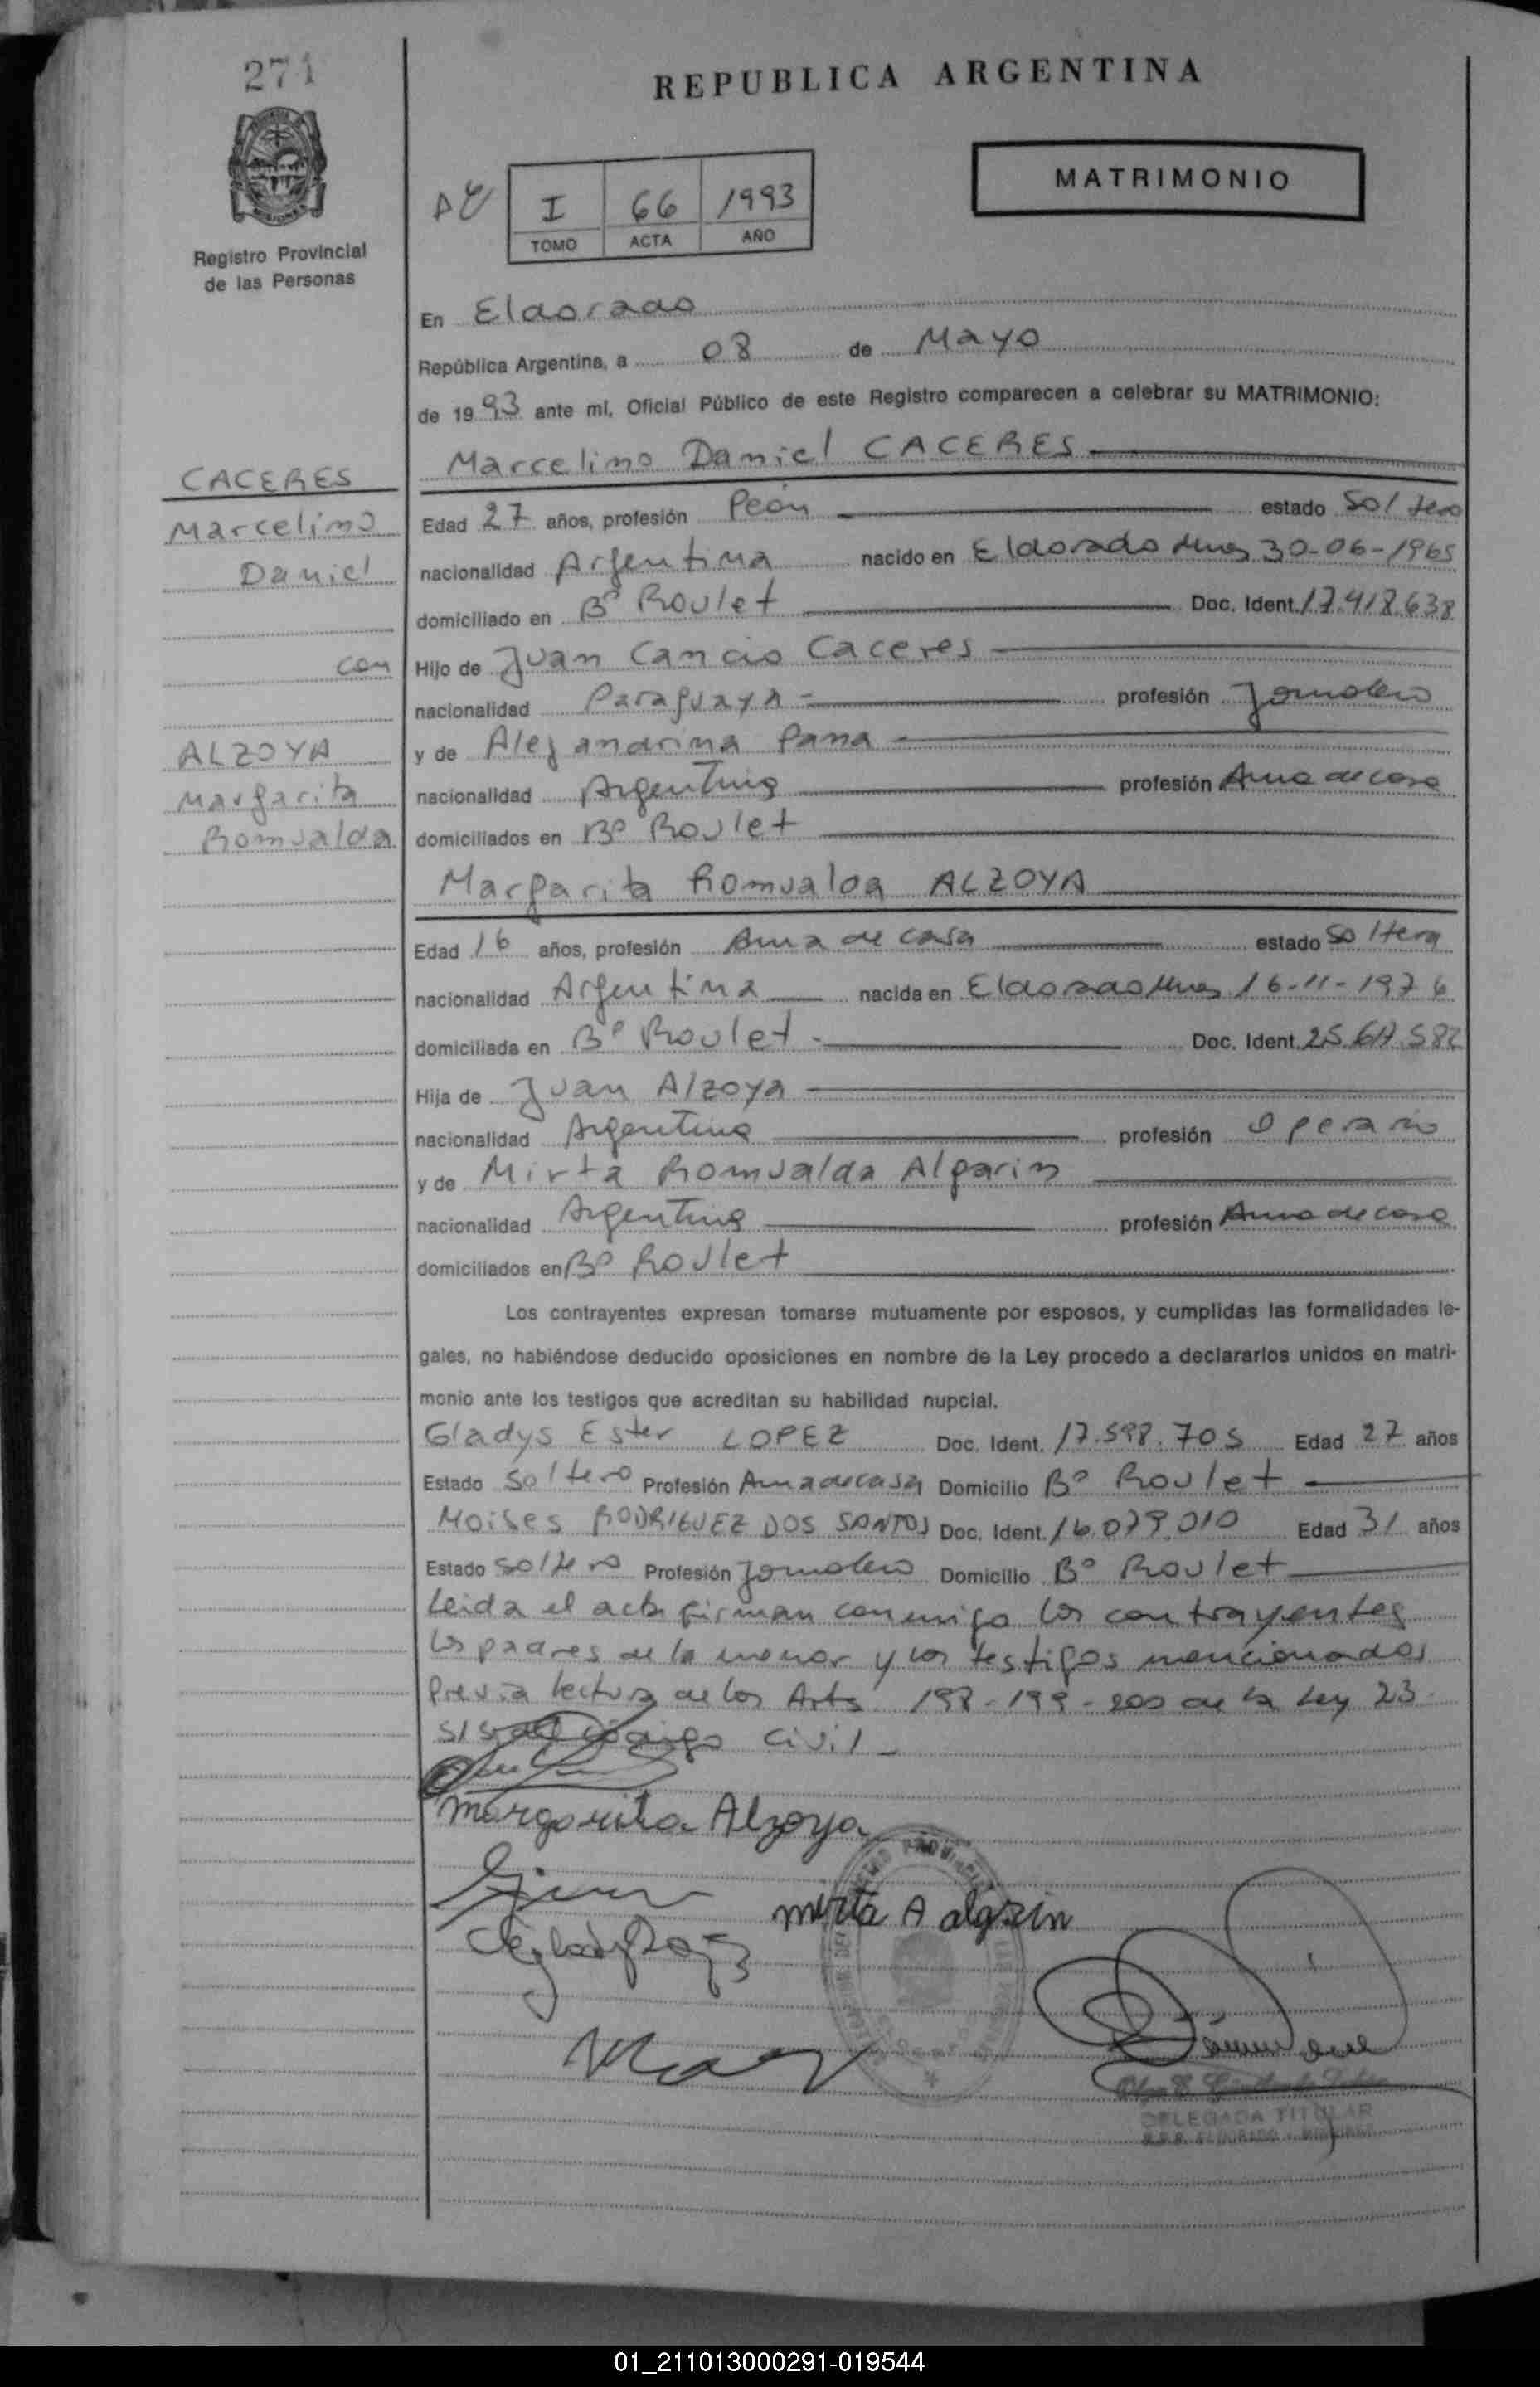 271
REPUBLICA ARGENTINA
MATRIMONIO
I 66 1993
TOMO ACTA AÑO
Registro Provincial
de las Personas
En Eldorado
República Argentina, a 08 de Mayo
de 1993 ante mí, Oficial Público de este Registro comparecen a celebrar su MATRIMONIO:
Marcelino Daniel CACERES
CACERES
Marcelino
Daniel
con
ALZOYA
Margarita
Romualda
Edad 27 años, profesión Peón estado Soltero
nacionalidad Argentina nacido en Eldorado Mnes 30-06-1965
domiciliado en Bº Roulet Doc. Ident. 17.418.638
Hijo de Juan Cancio Caceres
nacionalidad Paraguaya profesión Jornalero
y de Alejandrina Pana
nacionalidad Argentina profesión Ama de casa
domiciliados en Bº Roulet
Margarita Romualda ALZOYA
Edad 16 años, profesión Ama de casa estado Soltera
nacionalidad Argentina nacida en Eldorado Mnes 16-11-1976
domiciliada en Bº Roulet Doc. Ident. 25.617.582
Hija de Juan Alzoya
nacionalidad Argentina profesión Operario
y de Mirta Romualda Algarin
nacionalidad Argentina profesión Ama de casa
domiciliados en Bº Roulet
Los contrayentes expresan tomarse mutuamente por esposos, y cumplidas las formalidades le-
gales, no habiéndose deducido oposiciones en nombre de la Ley procedo a declararlos unidos en matri-
monio ante los testigos que acreditan su habilidad nupcial.
Gladys Ester LOPEZ Doc. Ident. 17.598.705 Edad 27 años
Estado Soltero Profesión Ama de casa Domicilio Bº Roulet
Moises RODRIGUEZ DOS SANTOS Doc. Ident. 16.079.010 Edad 31 años
Estado Soltero Profesión Jornalero Domicilio Bº Roulet
Leida el acta firman conmigo los contrayentes
los padres de la menor y los testigos mencionados
Previa lectura de los Arts 198-199-200 de la Ley 23.
515 del código civil
Margarita Alzoya
Mirta A algrin
DELEGADA TITULAR
R.P.P. ELDORADO - MISIONES
01_211013000291-019544